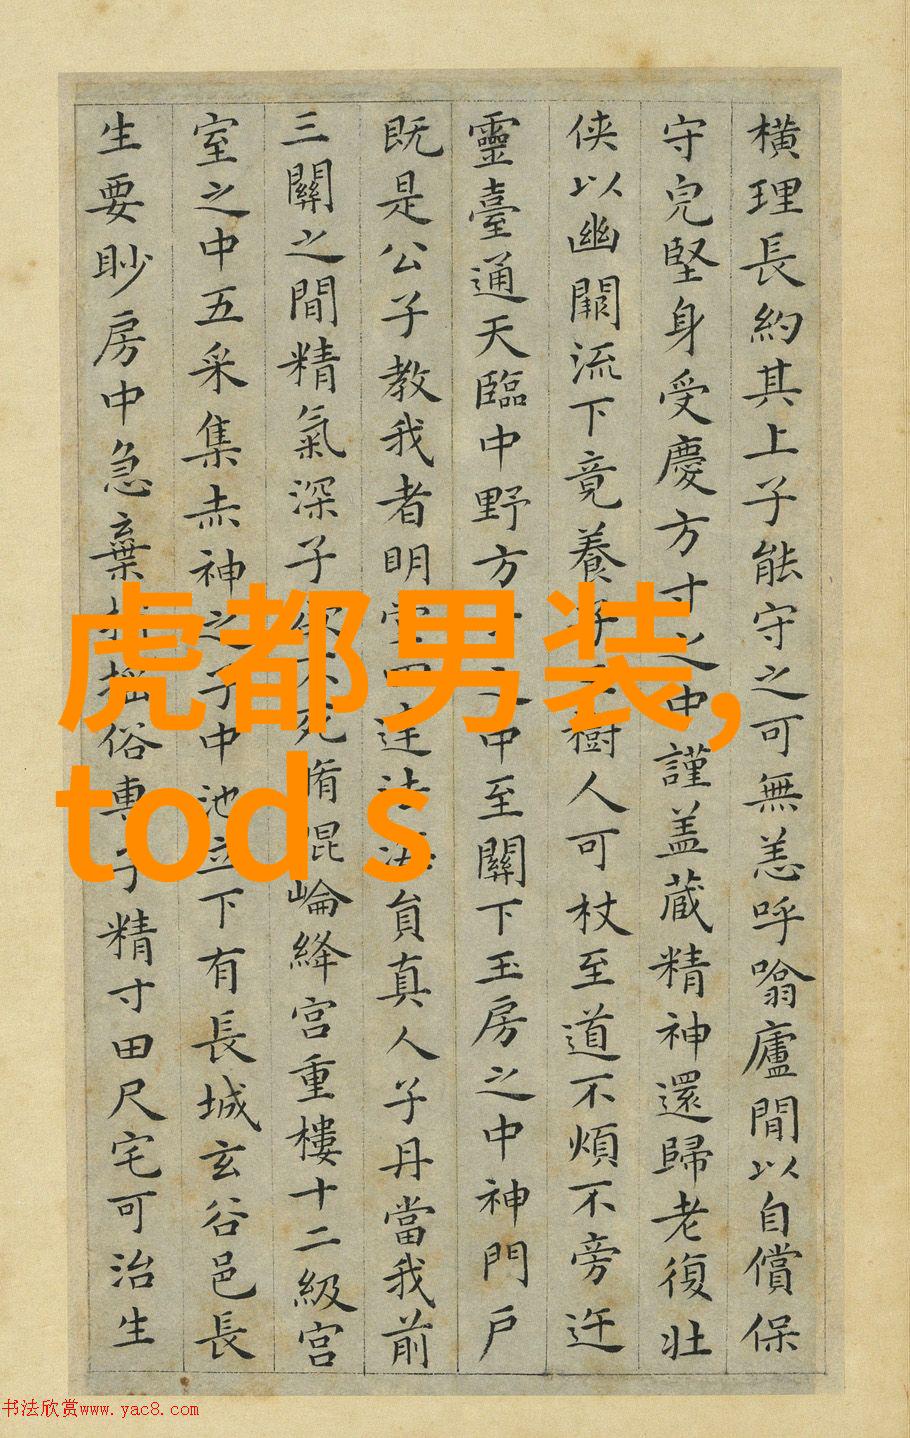 橫理長約其上子能守之可無恙呼噏廬間以自償保
守皃堅身受慶方寸之中謹盖蔵精神還歸老復壯
侠以幽闕流下竟養子樹人可杖至道不煩不旁迕
靈臺通天臨中野方寸之中至關下玉房之中神門戶
既是公子教我者明堂四達法海員真人子丹當我前
三關之間精氣深子欲不死脩混崘絳宮重樓十二級宮
室之中五采集赤神之子中池立下有長城玄谷邑長
生要眇房中急棄捐搖俗專子精寸田尺宅可治生
虎都男装,
tod s
书法欣赏www.yac8.com